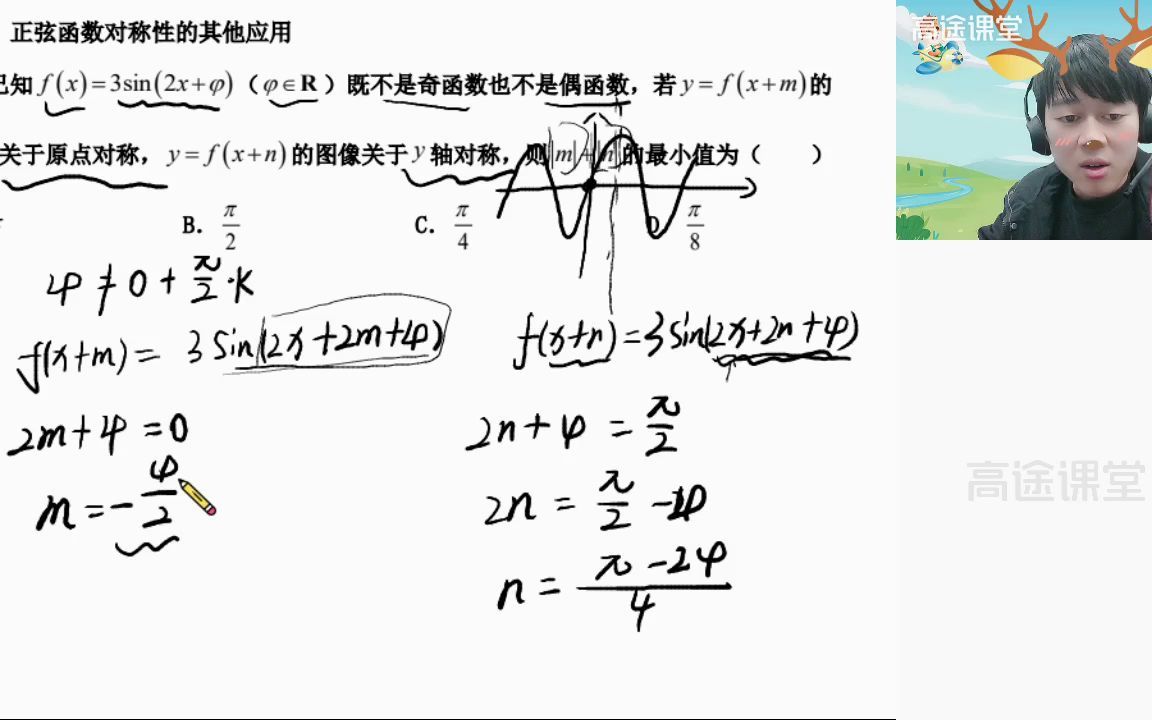 正弦函数对称性的其他应用
已知 f(x)=3sin(2x+φ)（φ∈R）既不是奇函数也不是偶函数，若 y=f(x+m)的
关于原点对称，y=f(x+n)的图像关于 y 轴对称，则|m|+|n|的最小值为（ ）
B. π/2 C. π/4 D. π/8
φ ≠ 0 + π/2 · K
f(x+m) = 3 Sin(2x+2m+φ)
f(x+n) = 3 Sin(2x+2n+φ)
2m+φ = 0
2n+φ = π/2
m = -φ/2
2n = π/2 - φ
n = (π-2φ)/4
高途课堂
高途课堂